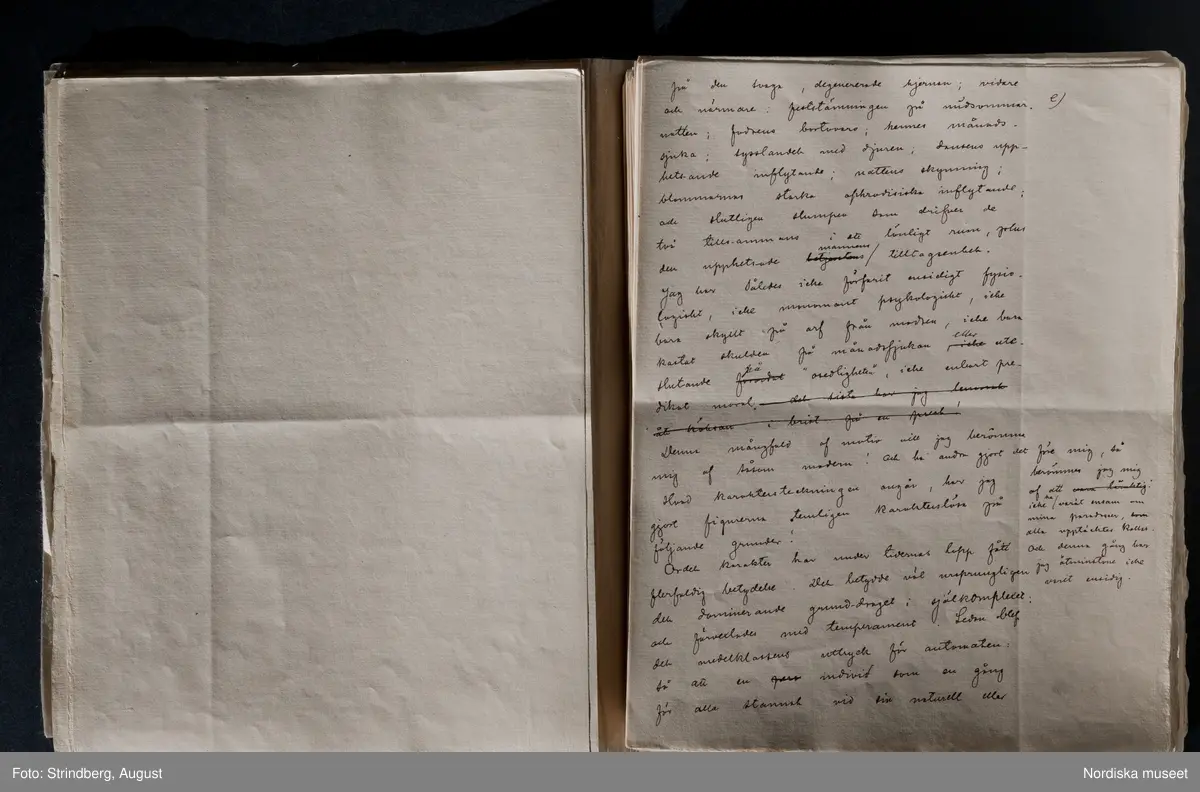 på den svaga, degenererade hjernan; vidare
och närmare: feststämningen på midsommar- e)
natten; fadrens bortvaro; hennes månads-
sjuka; sysslandet med djuren; dansens upp-
hetsande inflytande; nattens skymning;
blommornas starka aphrodisiska inflytande;
och slutligen slumpen som drifver de
två tillsammans i ett lönligt rum, plus
den upphetsade betjentens mannens / tilltagsenhet.
Jag har således icke förfarit ensidigt fysio-
logiskt, icke monomant psykologiskt, icke
bara skyllt på arf från modren, icke bara
kastat skulden på månadssjukan, icke eller ute-
slutande på "osedligheten", icke enbart pre-
dikat moral, det sista har jag lemnat
åt köksan i brist på en prest!
Denna mångfald af motiv vill jag berömma
mig af såsom modern! Och ha andra gjort det före mig, så
berömmes jag mig
af att
icke / varit ensam om
mina paradoxer, som
alla upptäckter kallas.
Och denna gång har
jag åtminstone icke
varit ensidig.
Hvad karaktersteckningen angår, har jag
gjort figurerna temligen karakterslösa på
följande grunder:
Ordet karakter har under tidernas lopp fått
flerfaldig betydelse. Det betydde väl ursprungligen
det dominerande grund-draget i själskomplexet,
och förvexlades med temperament. Sedan blef
det medelklassens uttryck för automaten;
så att en individ som en gång
för alla stannat vid sin naturell eller
Foto: Strindberg, August
Nordiska museet